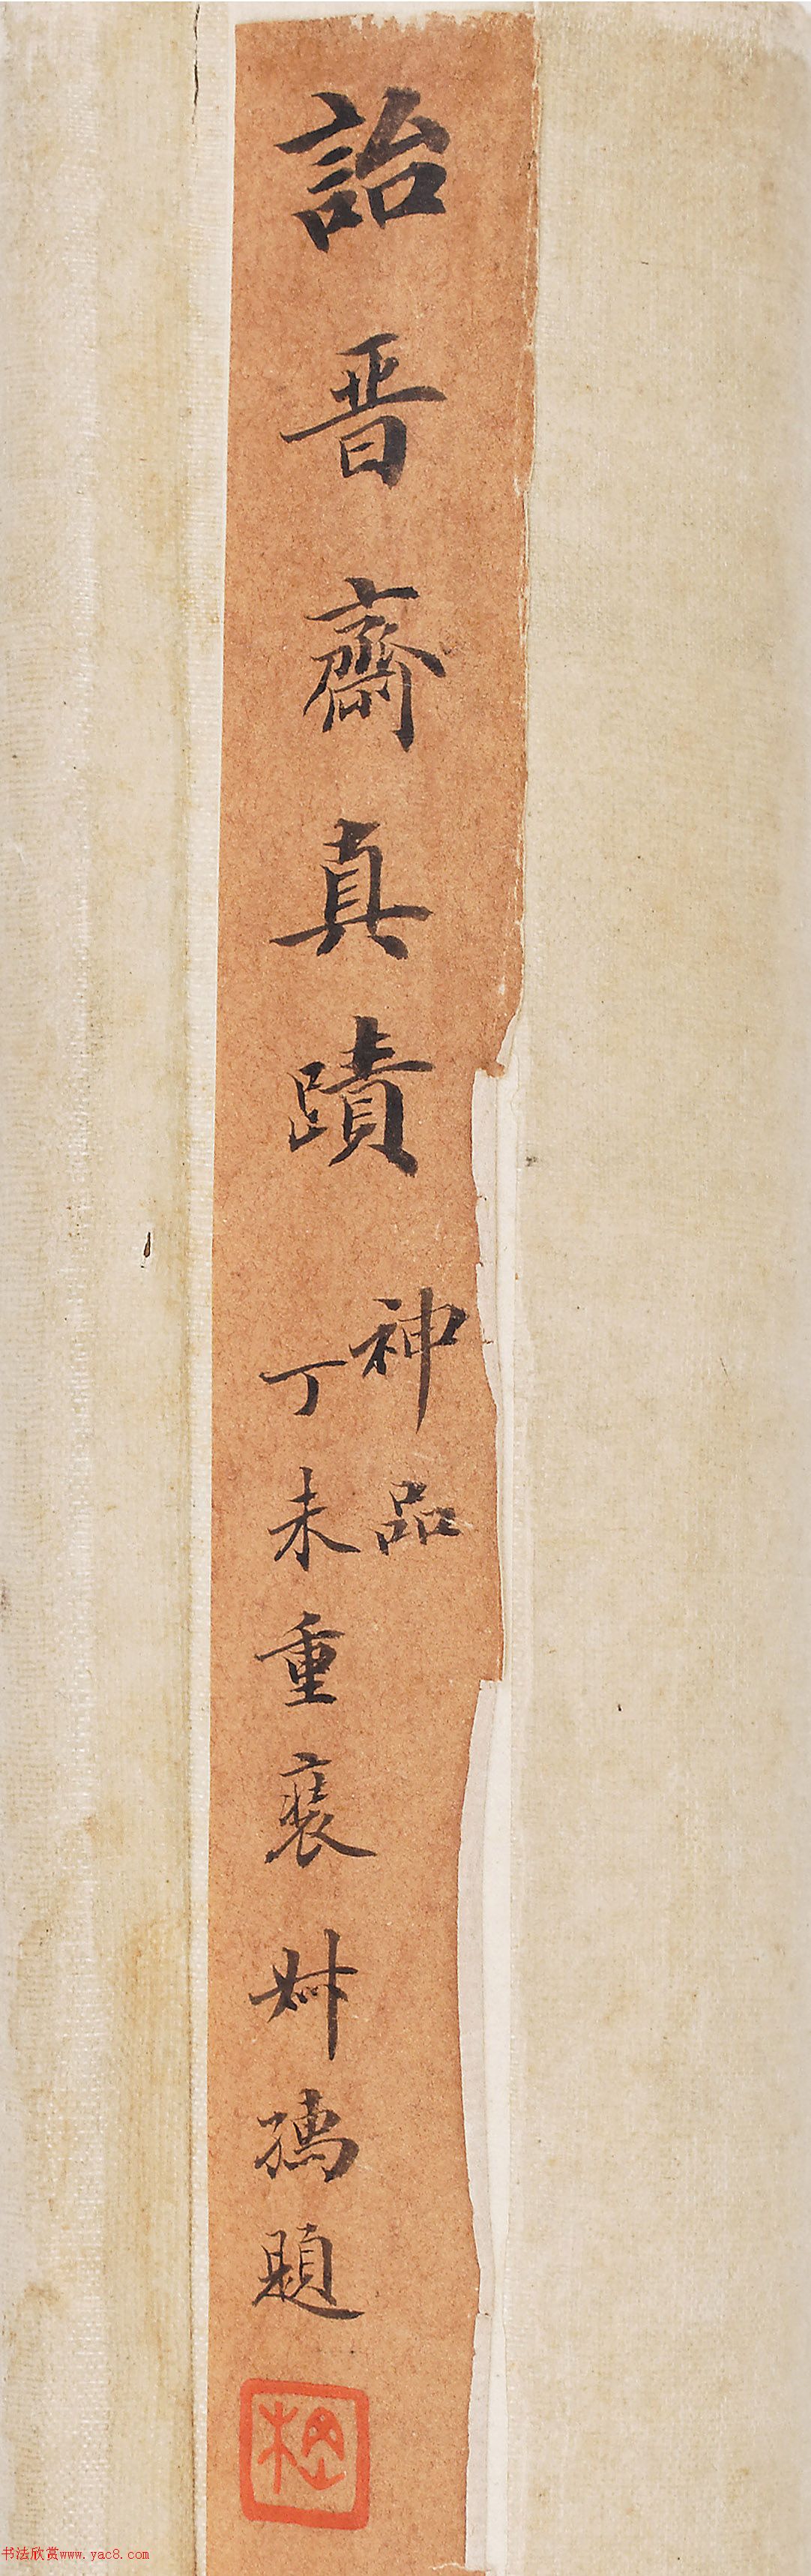 詒晋齋真蹟
神品
丁未重裝叔題
书法欣赏www.yac8.com